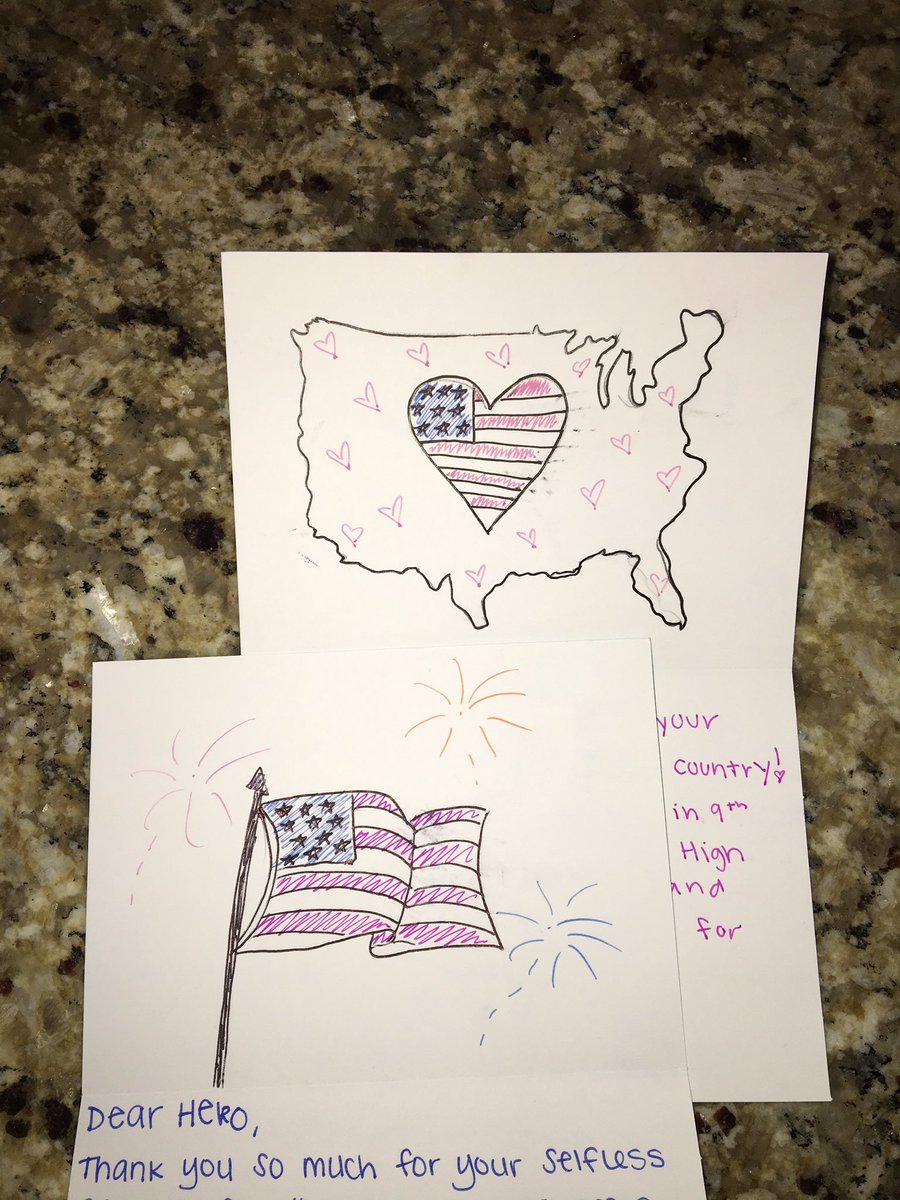 your
country!
in 9th
High
and
for
Dear Hero,
Thank you so much for your selfless